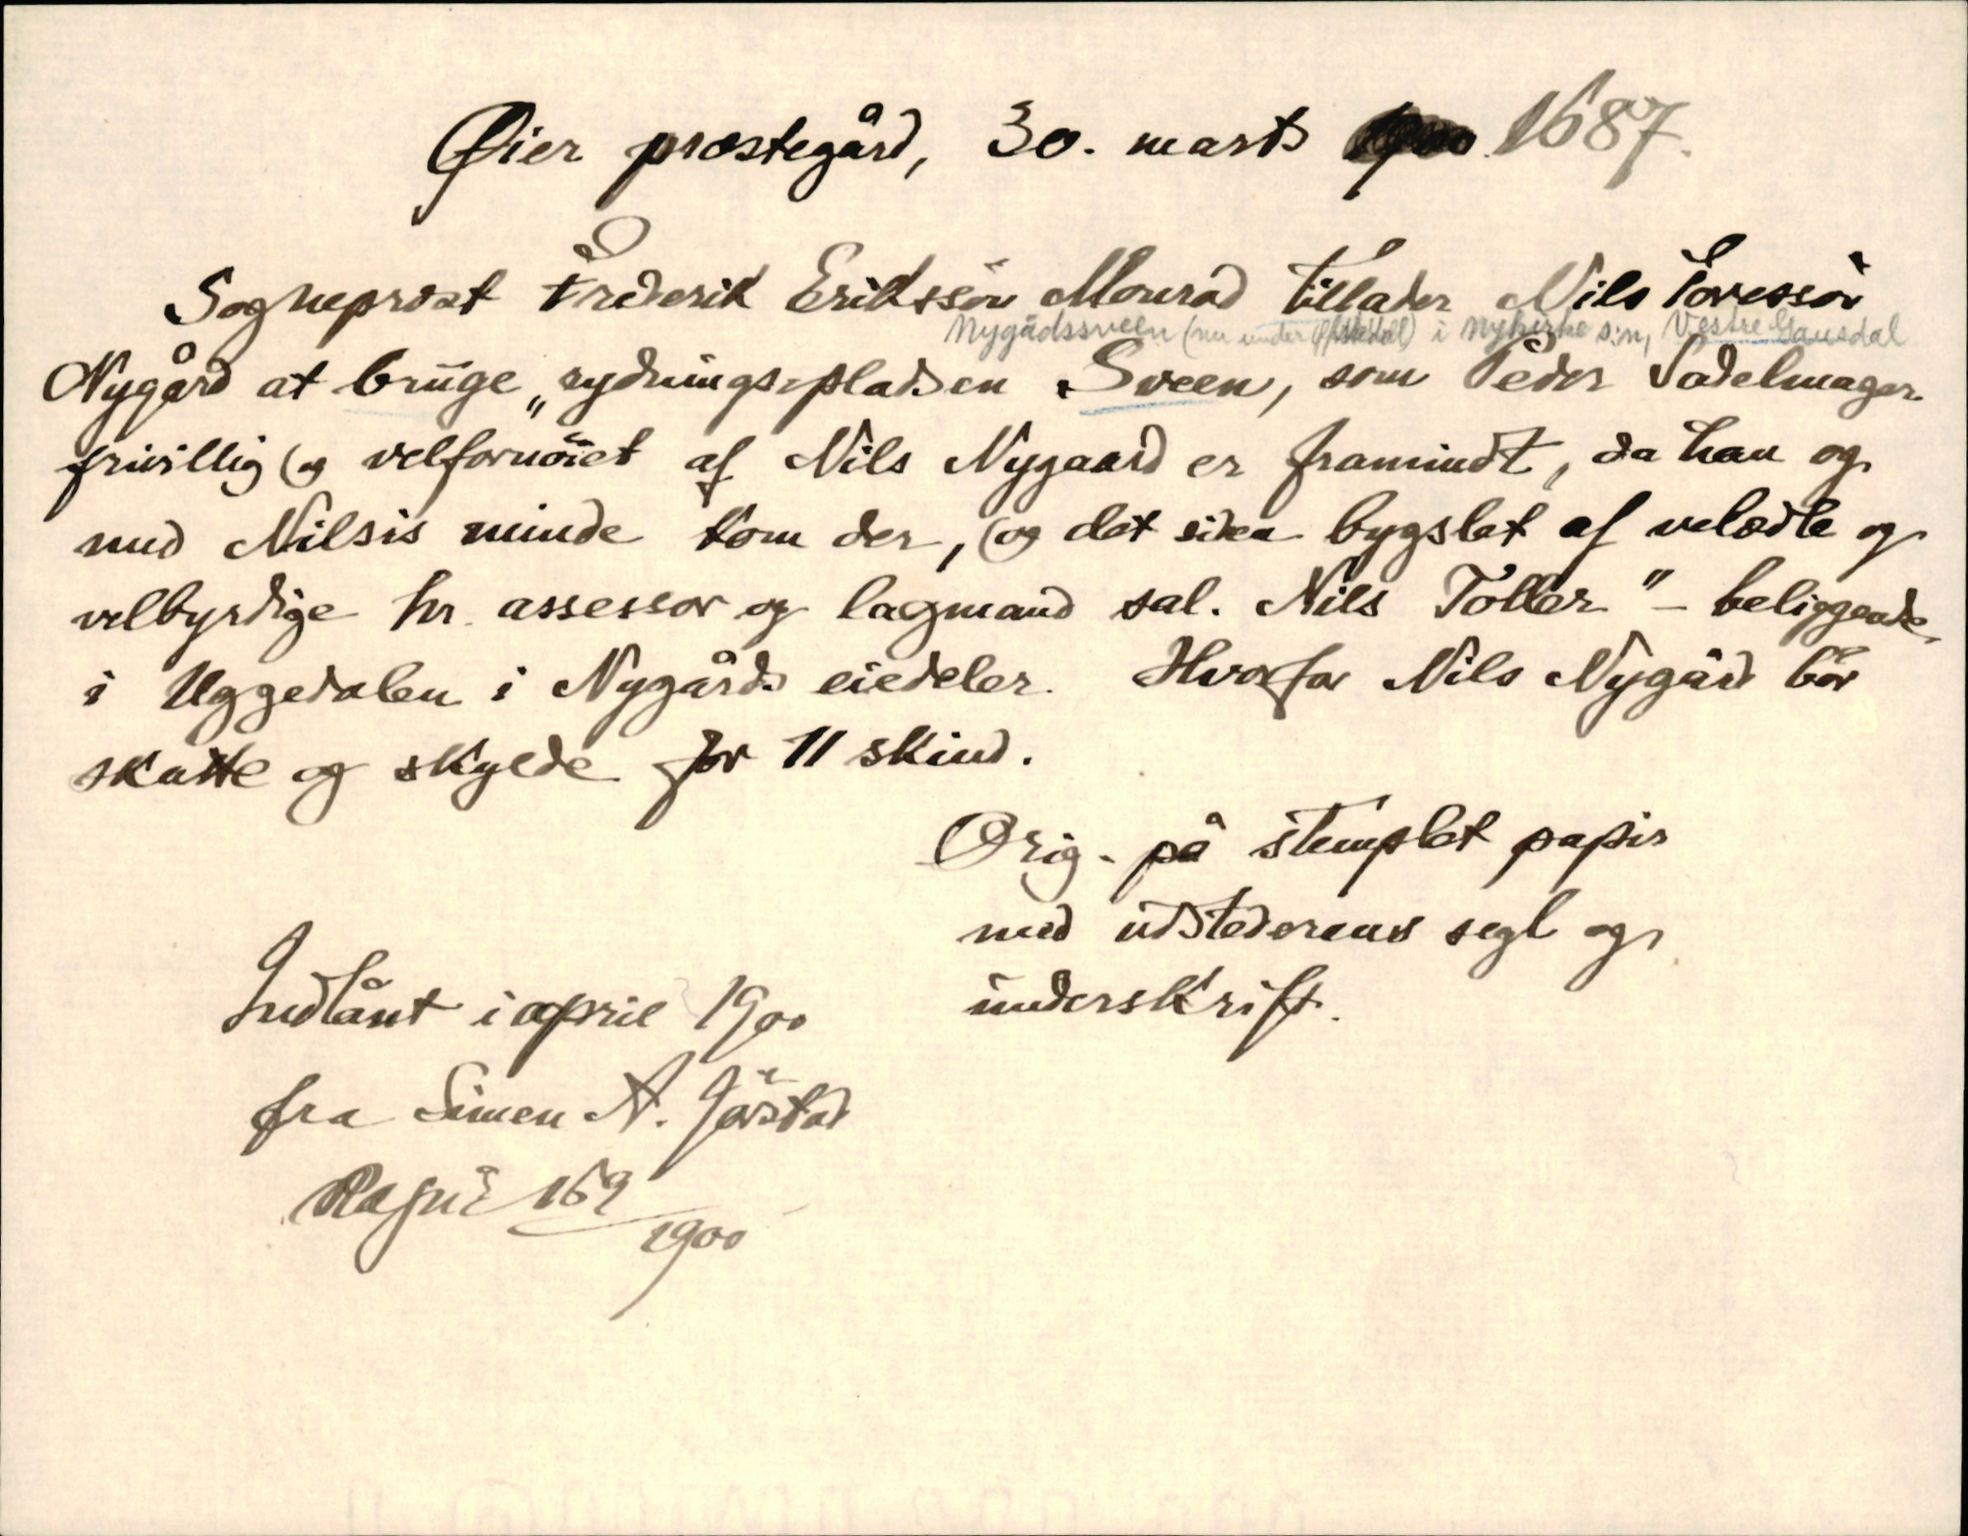 Øier præstegård, 30. marts 1687.
Sogneprest Friderik Erikssön Monrad tillader Nils Toressön
Nygådssveen (nu under) i Nykirke s:n, Vestre Gausdal
Nygård at bruge „rydningspladsen Sveen, som Peder Sadelmager
frivillig (og velfornöiet af Nils Nygaard er framindt, da han og
med Nilsis minde kom der, (og det siden bygslet af velædle og
velbyrdige hr. assessor og lagmand sal. Nils Toller" – beliggende
i Uggedalen i Nygårds eiedeler. Hvorfor Nils Nygård bör
skatte og skylde for 11 skind.
Orig. på stemplet papir
med udstederens segl og
underskrift.
Indlånt i april 1900
fra Simen A. Jörstad
169/1900